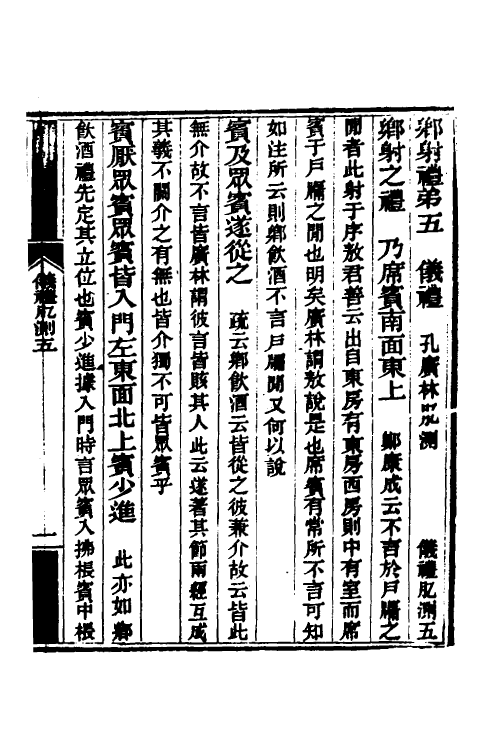 鄉射禮弟五　儀禮　孔廣林肊測　儀禮肊測五
鄉射之禮　乃席賓南面東上　鄭康成云不言於戶牖之
閒者此射于序敖君善云出自東房有東房西房則中有室而席
賓于戶牖之閒也明矣廣林謂敖說是也席賓有常所不言可知
如注所云則鄉飲酒不言戶牖閒又何以說
賓及眾賓遂從之　疏云鄉飲酒云皆從之彼兼介故云皆此
無介故不言皆廣林謂彼言皆賅其人此云遂著其節兩經互成
其義不關介之有無也皆介獨不可皆眾賓乎
賓厭眾賓眾賓皆入門左東面北上賓少進　此亦如鄉
飲酒禮先定其立位也賓少進據入門時言眾賓入拂棖賓中棖
儀禮肊測五
一